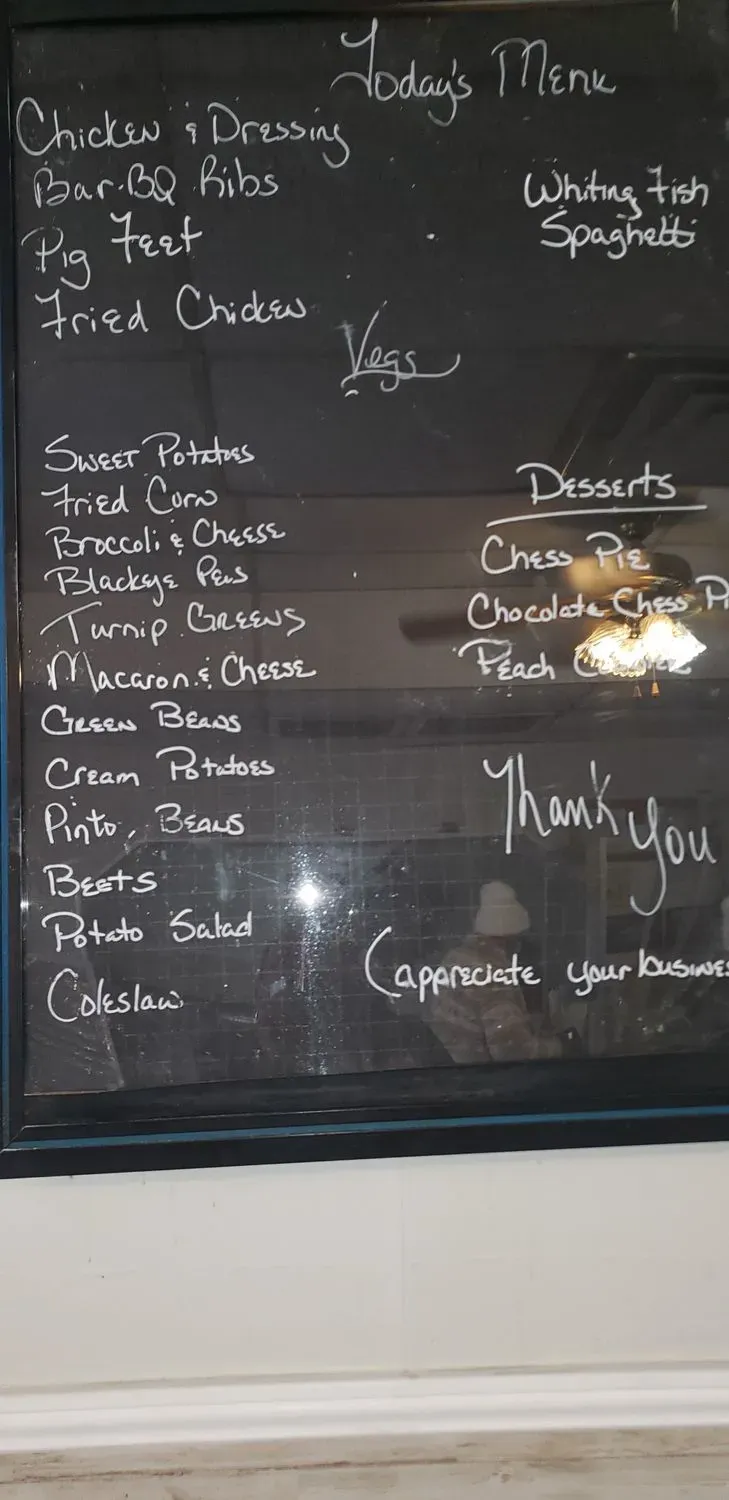 Today's Menu
Chicken & Dressing
Bar-BQ Ribs
Pig Feet
Fried Chicken
Whiting Fish
Spaghetti
Vegs
Sweet Potatoes
Fried Corn
Broccoli & Cheese
Blackeye Peas
Turnip Greens
Macaroni & Cheese
Green Beans
Cream Potatoes
Pinto, Beans
Beets
Potato Salad
Coleslaw
Desserts
Chess Pie
Chocolate Chess P
Peach
Thank you
(appreciate your busines